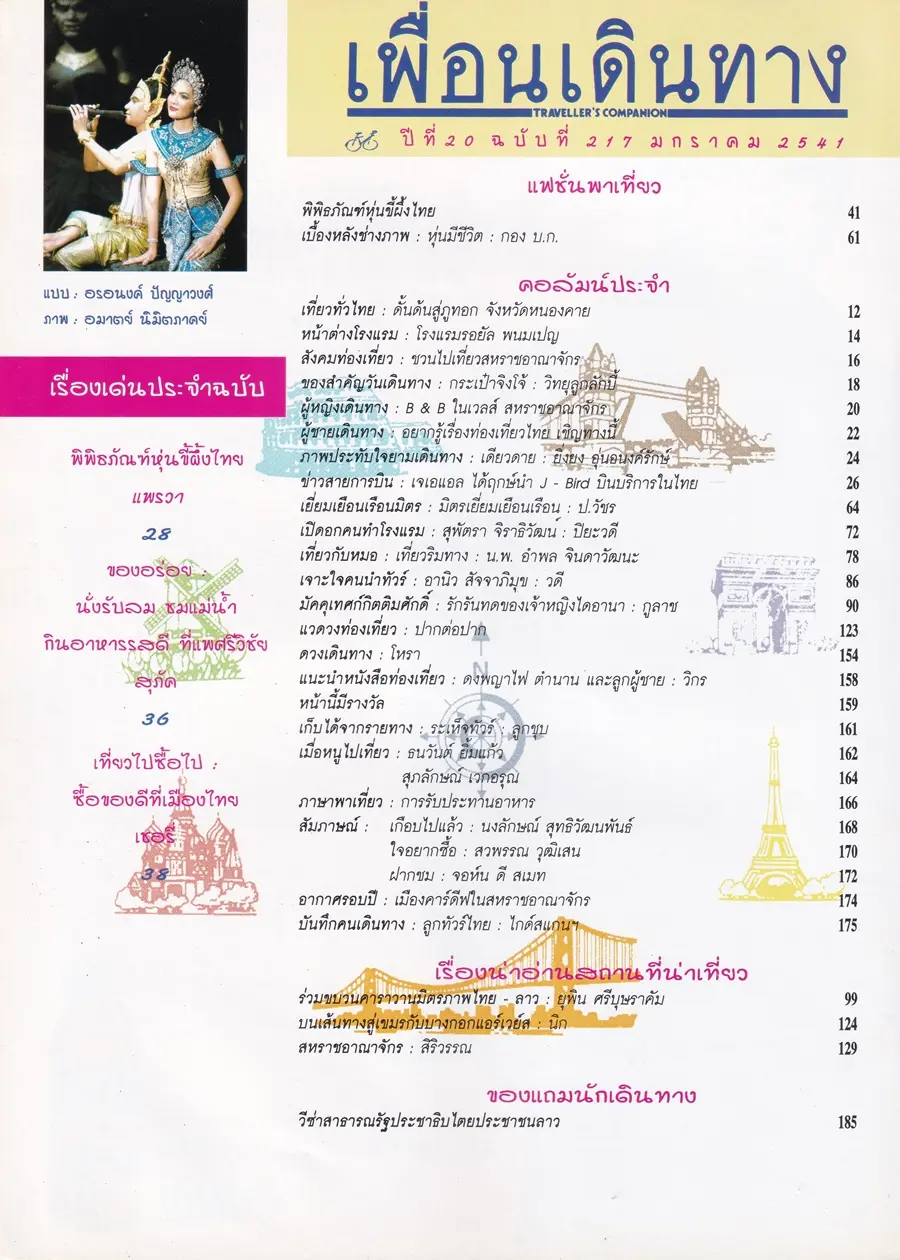 เพื่อนเดินทาง
TRAVELLER'S COMPANION
ปีที่ 20 ฉบับที่ 217 มกราคม 2541
แบบ : อรอนงค์ ปัญญาวงศ์
ภาพ : อมาตย์ นิมิตภาคย์
เรื่องเด่นประจำฉบับ
พิพิธภัณฑ์หุ่นขี้ผึ้งไทย
แพรวา
28
ของอร่อย :
นั่งรับลม ชมแม่น้ำ
กินอาหารรสดี ที่แพศรีวิชัย
สุภัค
36
เที่ยวไปซื้อไป :
ซื้อของดีที่เมืองไทย
เชอรี่
38
แฟชั่นพาเที่ยว
พิพิธภัณฑ์หุ่นขี้ผึ้งไทย 41
เบื้องหลังช่างภาพ : หุ่นมีชีวิต : กอง บ.ก. 61
คอลัมน์ประจำ
เที่ยวทั่วไทย : ดั้นด้นสู่ภูทอก จังหวัดหนองคาย 12
หน้าต่างโรงแรม : โรงแรมรอยัล พนมเปญ 14
สังคมท่องเที่ยว : ชวนไปเที่ยวสหราชอาณาจักร 16
ของสำคัญวันเดินทาง : กระเป๋าจิงโจ้ : วิทยุลูกลักบี้ 18
ผู้หญิงเดินทาง : B & B ในเวลส์ สหราชอาณาจักร 20
ผู้ชายเดินทาง : อยากรู้เรื่องท่องเที่ยวไทย เชิญทางนี้ 22
ภาพประทับใจยามเดินทาง : เดียวดาย : ยิ่งยง อุ่นอนงค์รักษ์ 24
ข่าวสายการบิน : เจเอแอล ได้ฤกษ์นำ J - Bird บินบริการในไทย 26
เยี่ยมเยือนเรือนมิตร : มิตรเยี่ยมเยือนเรือน : ป.วัชร 64
เปิดอกคนทำโรงแรม : สุพัตรา จิราธิวัฒน์ : ปิยะวดี 72
เที่ยวกับหมอ : เที่ยวริมทาง : น.พ. อำพล จินดาวัฒนะ 78
เจาะใจคนนำทัวร์ : อานิว สัจจาภิมุข : วดี 86
มัคคุเทศก์กิตติมศักดิ์ : รักรันทดของเจ้าหญิงไดอานา : กูลาช 90
แวดวงท่องเที่ยว : ปากต่อปาก 123
ดวงเดินทาง : โหรา 154
แนะนำหนังสือท่องเที่ยว : ดงพญาไฟ ตำนาน และลูกผู้ชาย : วิกร 158
หน้านี้มีรางวัล 159
เก็บได้จากรายทาง : ระเห็จทัวร์ : ลูกชุบ 161
เมื่อหนูไปเที่ยว : ธนวันต์ ยิ้มแก้ว 162
สุภลักษณ์ เวกอรุณ 164
ภาษาพาเที่ยว : การรับประทานอาหาร 166
สัมภาษณ์ : เกือบไปแล้ว : นงลักษณ์ สุทธิวัฒนพันธ์ 168
ใจอยากซื้อ : สวพรรณ วุฒิเสน 170
ฝากชม : จอห์น ดี สเมท 172
อากาศรอบปี : เมืองคาร์ดีฟในสหราชอาณาจักร 174
บันทึกคนเดินทาง : ลูกทัวร์ไทย : ไกด์สแกนฯ 175
เรื่องน่าอ่านสถานที่น่าเที่ยว
ร่วมขบวนคาราวานมิตรภาพไทย - ลาว : ยุพิน ศรีบุษราคัม 99
บนเส้นทางสู่เขมรกับบางกอกแอร์เวย์ส : นิก 124
สหราชอาณาจักร : สิริวรรณ 129
ของแถมนักเดินทาง
วีซ่าสาธารณรัฐประชาธิปไตยประชาชนลาว 185
N